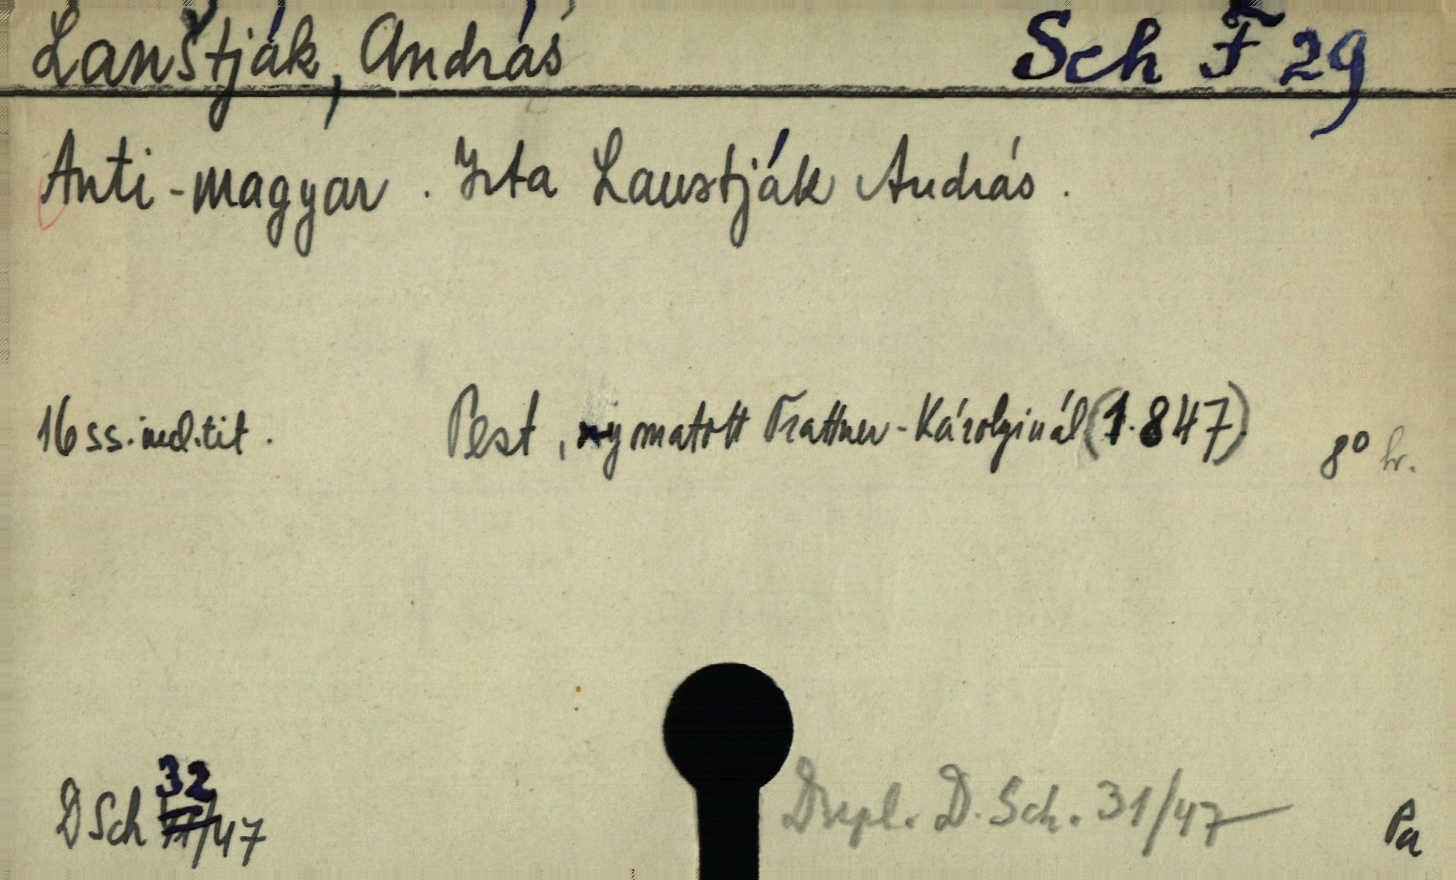 Lanštják, András Sch F 29
Anti-magyar. Irta Lanstják András.
16 ss. incl. tit. Pest, nyomatott Trattner-Károlyinál (1.847) 8° br.
D Sch 32/47 Dupl. D. Sch. 31/47 Pa